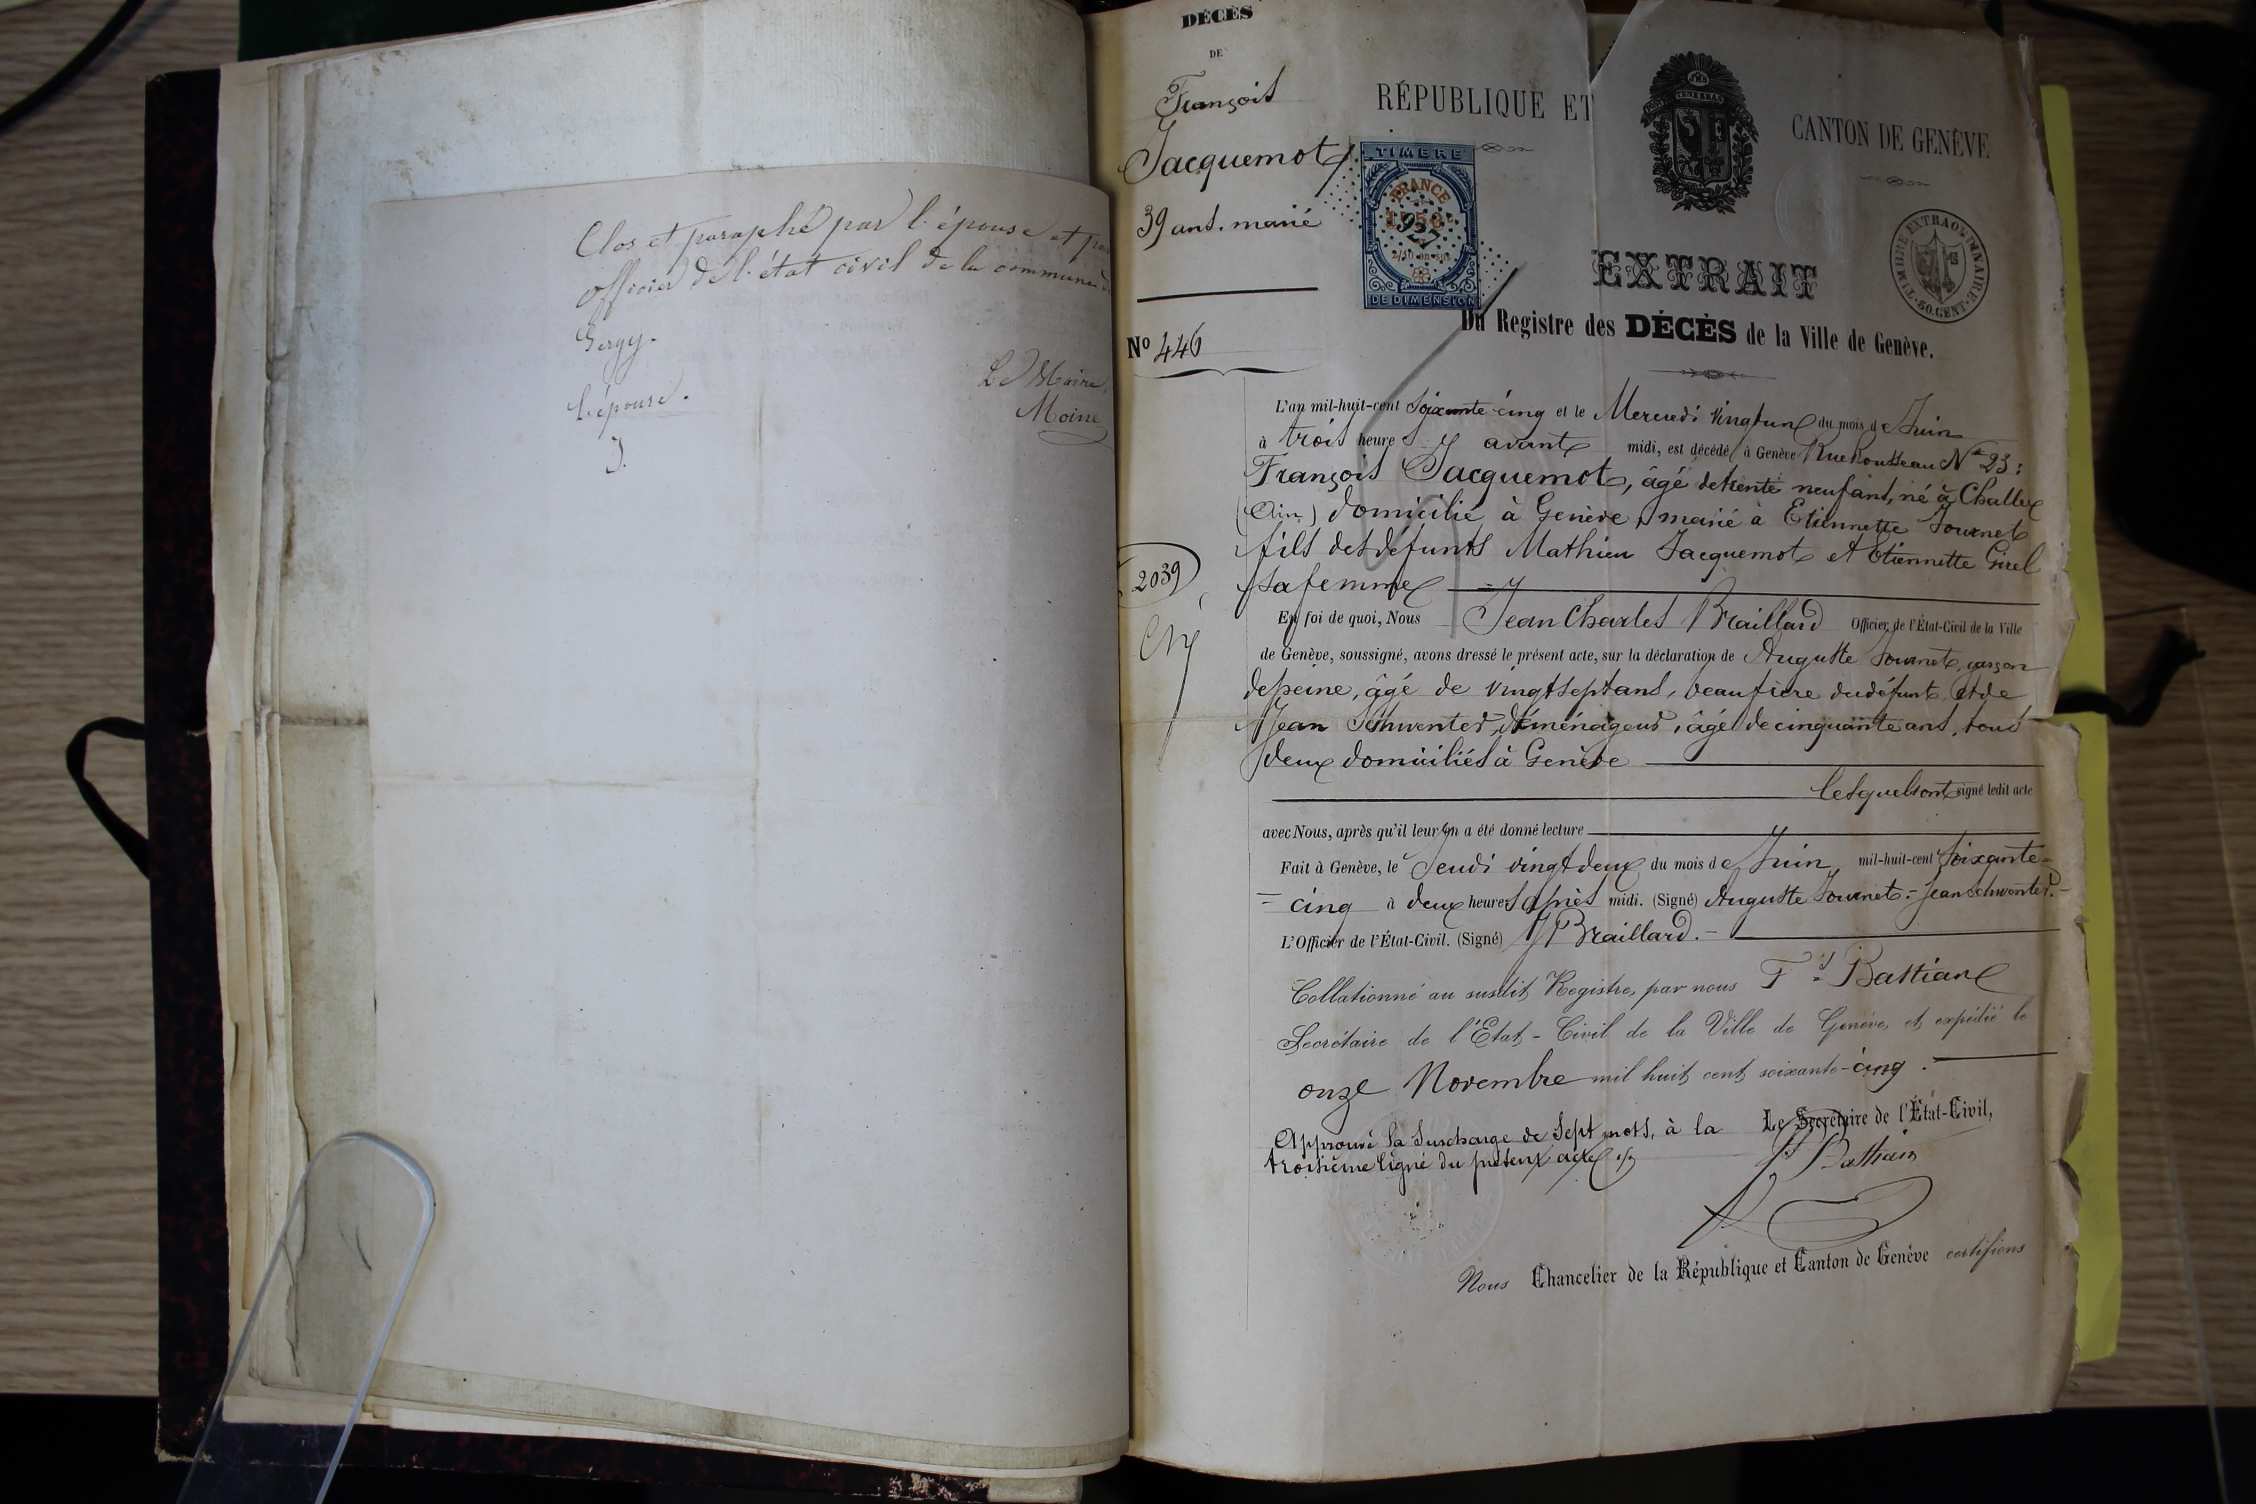 Clos et paraphé par l'épouse et par
officier de l'état civil de la commune de
Sergy.
Le Maire,
l'épouse.
Moine
J.
DÉCÈS
DE
François
Jacquemot
39 ans. marié
Nº 446
2039
RÉPUBLIQUE ET
CANTON DE GENÈVE
POST TENEBRAS
TIMBRE
FRANCE
927
DE DIMENSION
TIMBRE EXTRAORDINAIRE
50. CENT.
EXTRAIT
Du Registre des DÉCÈS de la Ville de Genève.
L'an mil-huit-cent soixante-cinq et le Mercredi vingt un du mois de Juin
à trois heures avant midi, est décédé à Genève Rue Rousseau Nº 23:
François Jacquemot, âgé de trente neuf ans, né à Challex
(Ain) domicilié à Genève, marié à Etiennette Tournet
fils des défunts Mathieu Jacquemot et Etiennette Girel
sa femme
En foi de quoi, Nous Jean Charles Braillard Officier de l'État-Civil de la Ville
de Genève, soussigné, avons dressé le présent acte, sur la déclaration de Auguste Tournet, garçon
de peine, âgé de vingt sept ans, beau frère du défunt et de
Jean Schwenter, déménageur, âgé de cinquante ans, tous
deux domiciliés à Genève
lesquels ont signé ledit acte
avec Nous, après qu'il leur en a été donné lecture
Fait à Genève, le Jeudi vingt deux du mois de Juin mil-huit-cent soixante-
= cinq à deux heures après midi. (Signé) Auguste Tournet = Jean Schwenter.=
L'Officier de l'État-Civil. (Signé) J Braillard.=
Collationné au susdit Registre, par nous Fs Bastian
Secrétaire de l'Etat-Civil de la Ville de Genève, et expédié le
onze Novembre mil huit cent soixante-cinq.
Approuvé la surcharge de sept mots, à la
troisième ligne du présent acte
Le Secrétaire de l'État-Civil,
Fs Bastian
Nous Chancelier de la République et Canton de Genève certifions